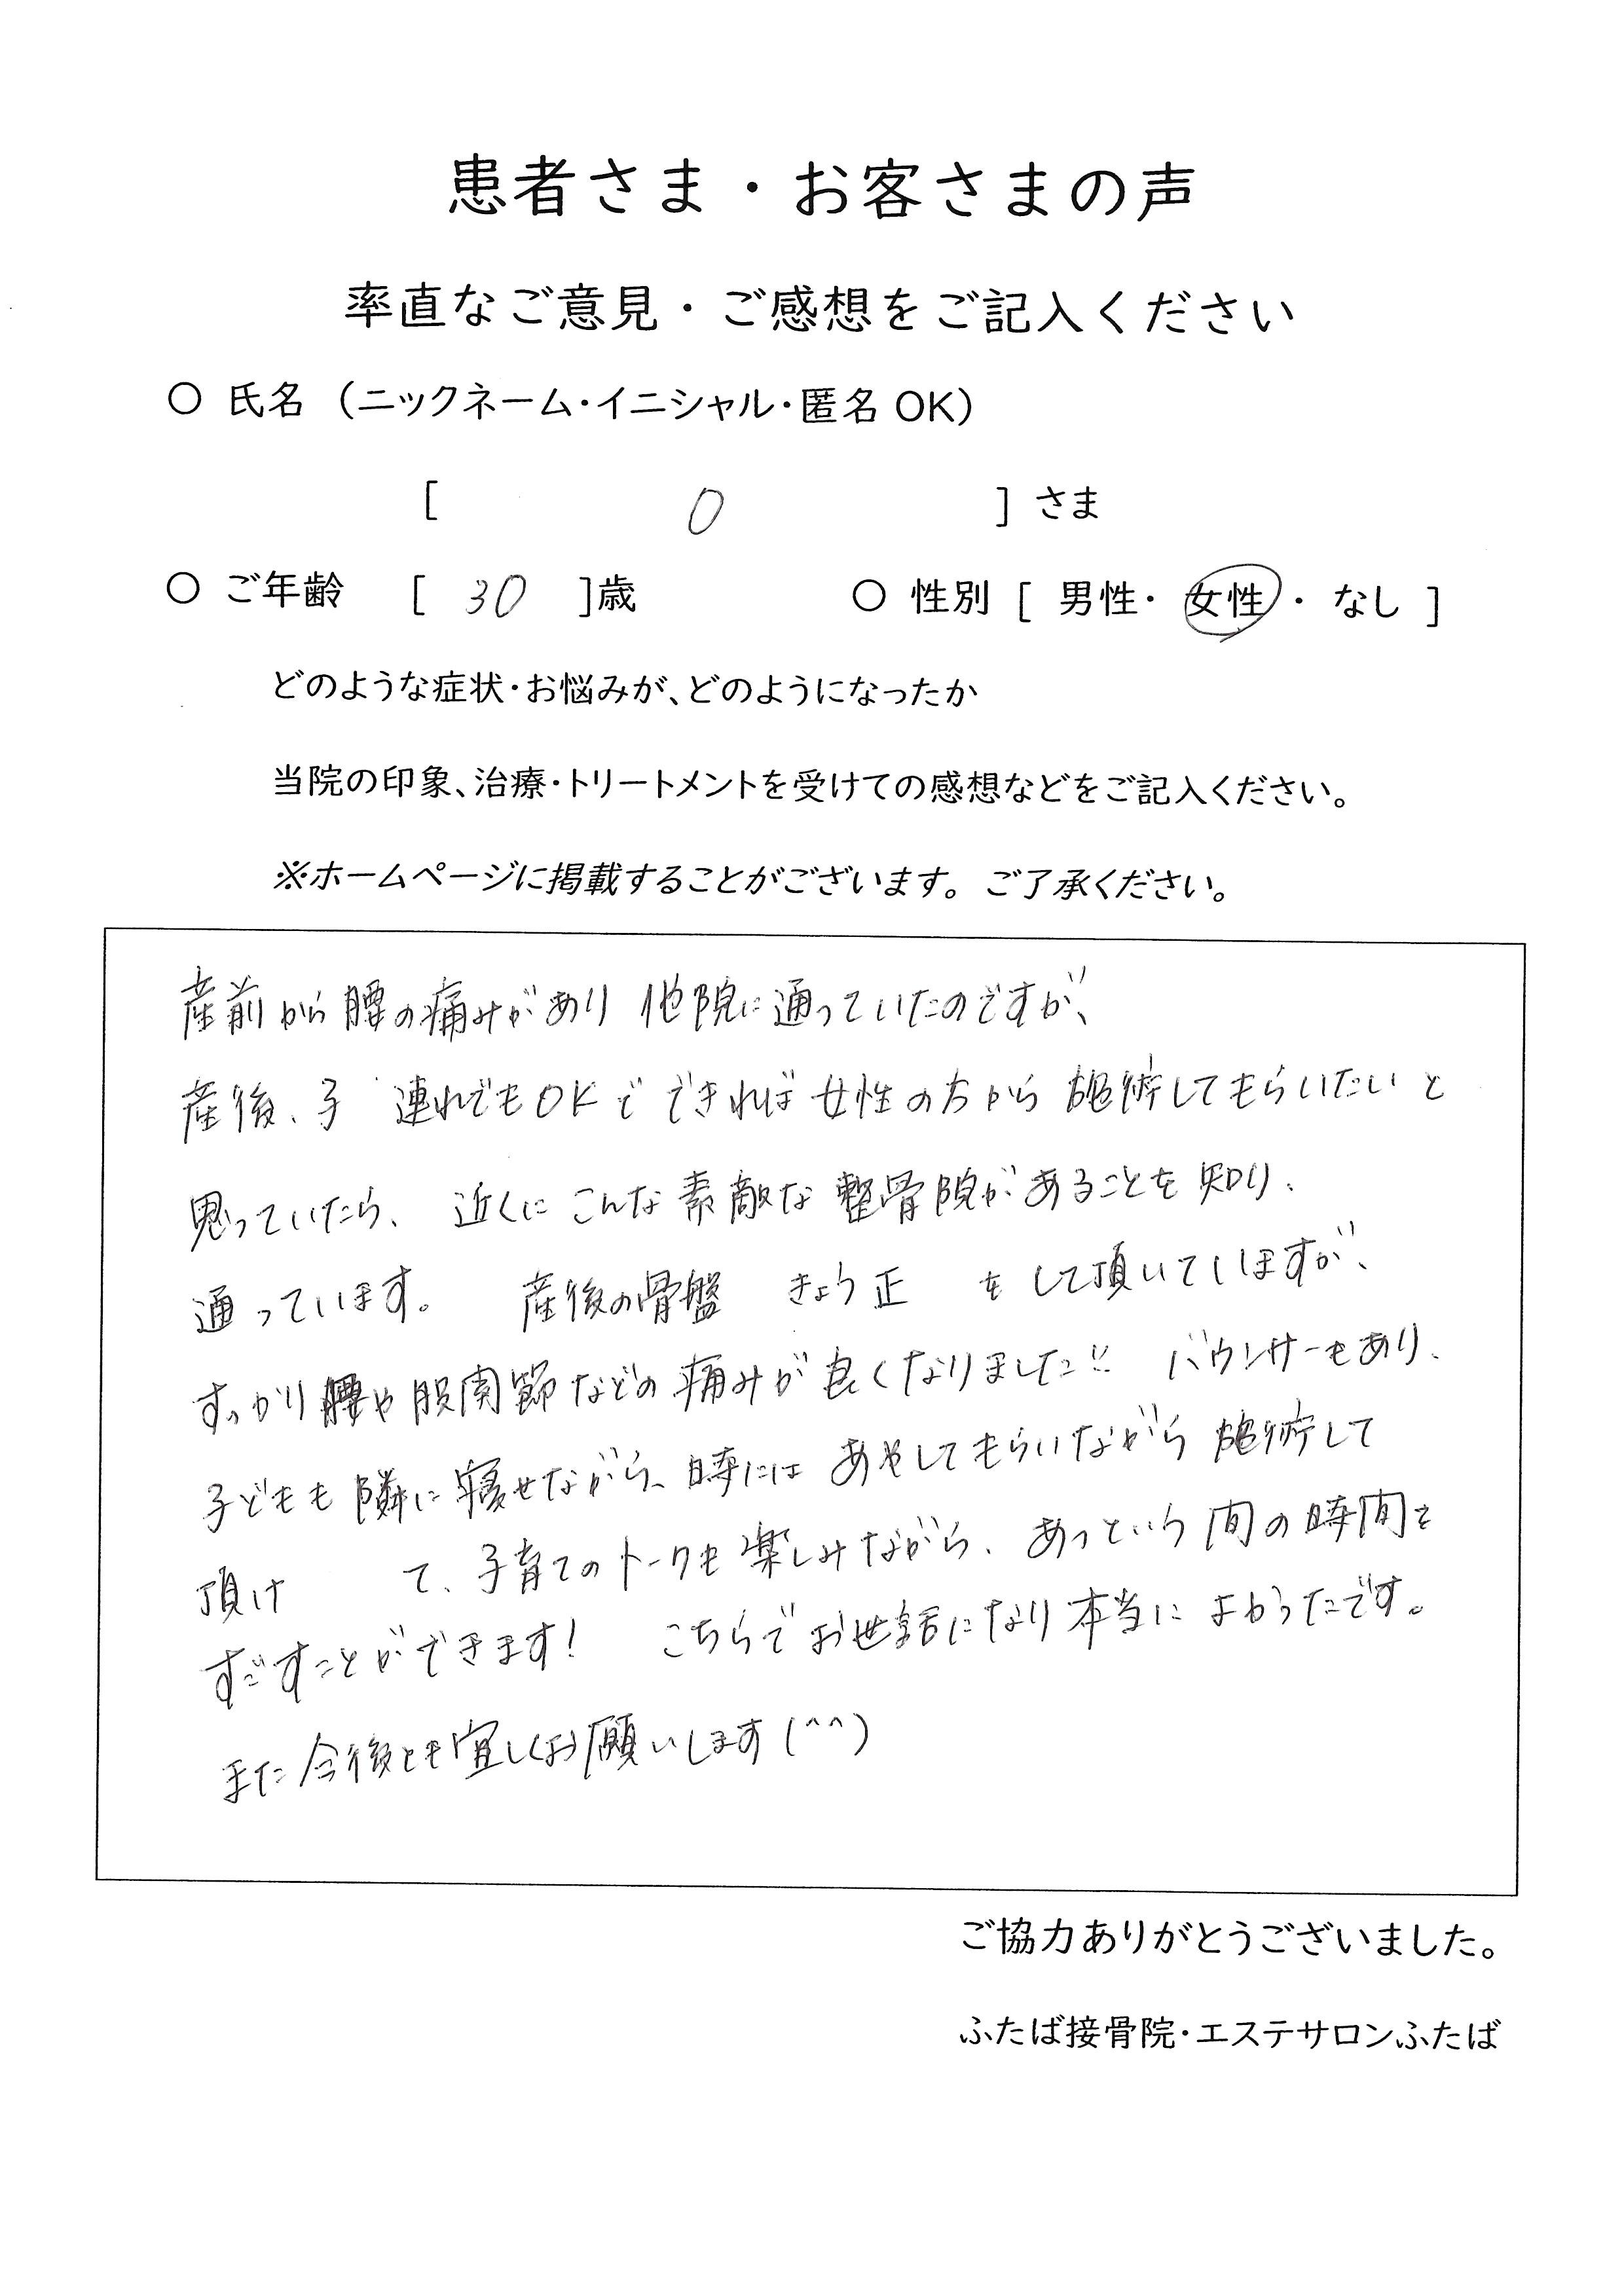 患者さま・お客さまの声
率直なご意見・ご感想をご記入ください
○ 氏名 （ニックネーム・イニシャル・匿名 OK）
[ O ] さま
○ ご年齢 [ 30 ]歳 ○ 性別 [ 男性・ 女性 ・ なし ]
どのような症状・お悩みが、どのようになったか
当院の印象、治療・トリートメントを受けての感想などをご記入ください。
※ホームページに掲載することがございます。ご了承ください。
産前から腰の痛みがあり 他院に通っていたのですが、
産後、子 連れでもOKで できれば女性の方から 施術してもらいたいと
思っていたら、 近くに こんな素敵な 整骨院があることを知り、
通っています。 産後の骨盤 きょう正 を して頂いていますが、
すっかり腰や股関節などの痛みが良くなりました!! バウンサーもあり、
子どもも隣に寝せながら、時には あやしてもらいながら 施術して
頂け て、子育てのトークも楽しみながら、あっという間の時間を
すごすことができます! こちらでお世話になり本当に よかったです。
また今後とも宜しくお願いします(^^)
ご協力ありがとうございました。
ふたば接骨院・エステサロンふたば